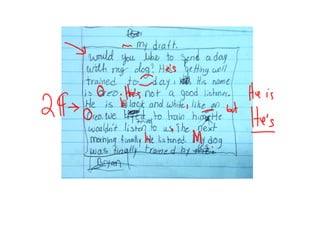 my draft.
would you like to spend a day
with my dog? He's getting well
trained to day. His name
is Oreo. He's not a good listener.
2 ¶ → He is black and white, like an but He is
Oreo. we to train him. He He's
wouldn't listen to us. The next
morning finally he listened. My dog
was finally trained by
Bryan